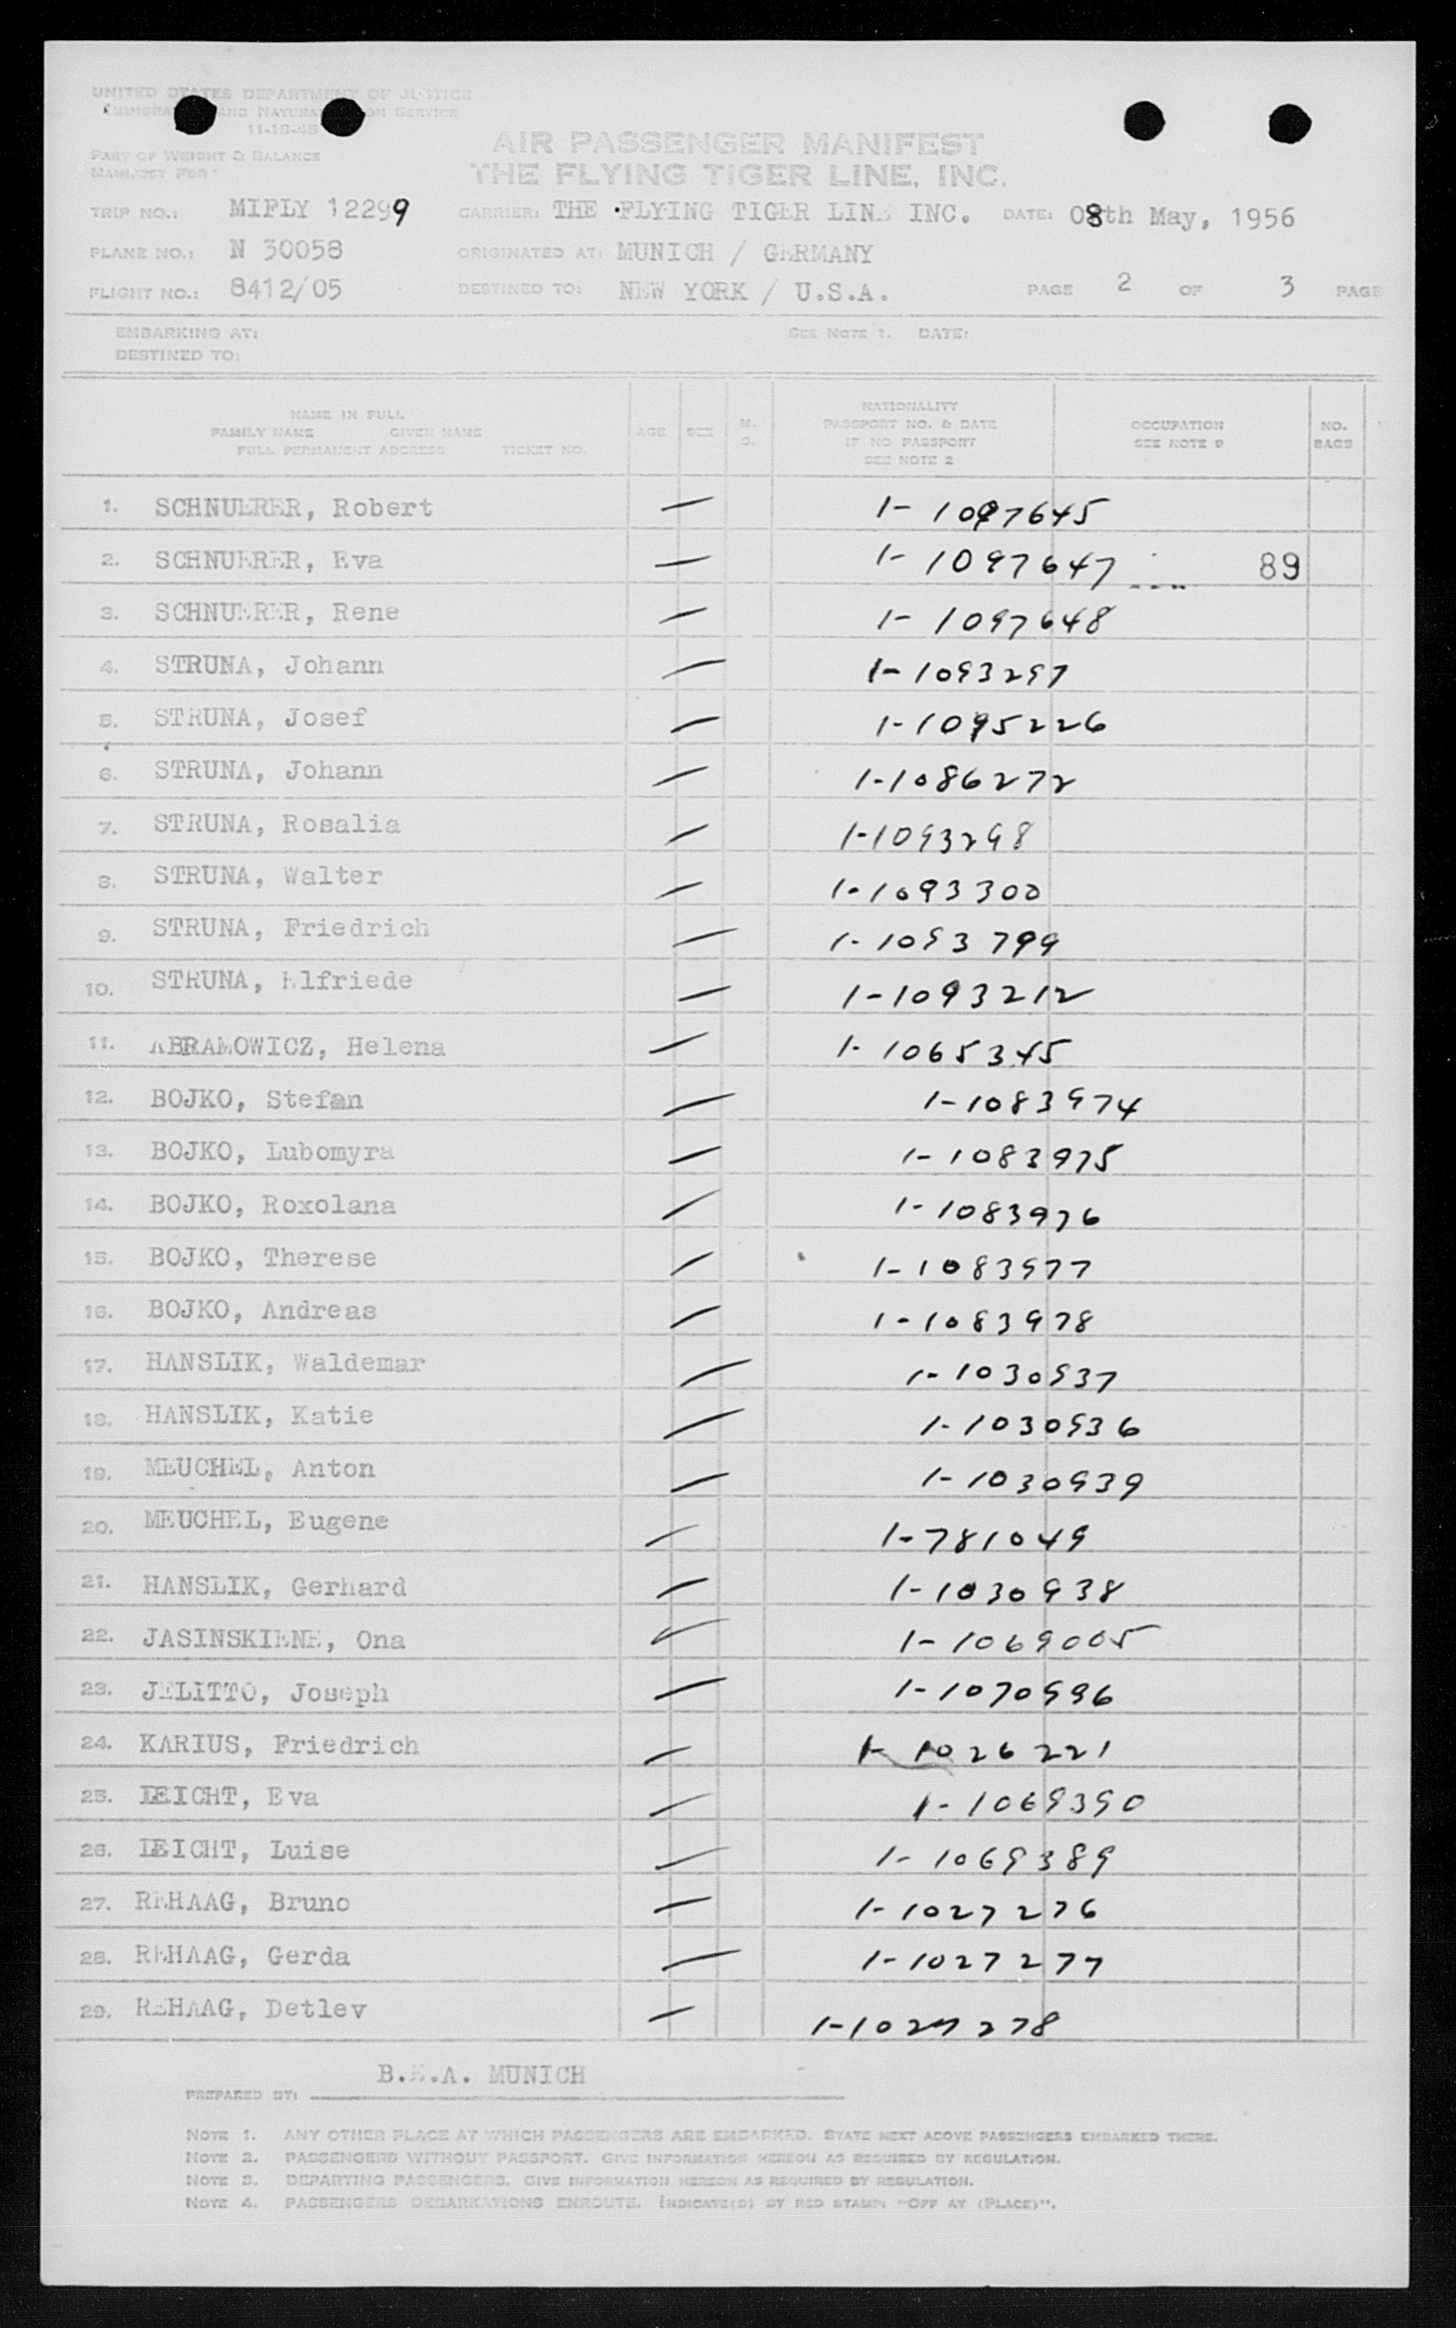 UNITED STATES DEPARTMENT OF JUSTICE
IMMIGRATION AND NATURALIZATION SERVICE
11-10-48
PART OF WEIGHT & BALANCE
MANIFEST FOR:
AIR PASSENGER MANIFEST
THE FLYING TIGER LINE, INC.
TRIP NO.: MIFLY 12299 CARRIER: THE FLYING TIGER LINE INC. DATE: 08th May, 1956
PLANE NO.: N 30058 ORIGINATED AT: MUNICH / GERMANY
FLIGHT NO.: 8412/05 DESTINED TO: NEW YORK / U.S.A. PAGE 2 OF 3 PAGE
EMBARKING AT: SEE NOTE 1. DATE:
DESTINED TO:
NAME IN FULL
FAMILY NAME GIVEN NAME
FULL PERMANENT ADDRESS TICKET NO.
AGE SEX M. S.
NATIONALITY
PASSPORT NO. & DATE
IF NO PASSPORT
SEE NOTE 2
OCCUPATION
SEE NOTE 9
NO.
BAGS
1. SCHNUERER, Robert — 1-1097645
2. SCHNUERER, Eva — 1-1097647 89
3. SCHNUERER, Rene — 1-1097648
4. STRUNA, Johann — 1-1093297
5. STRUNA, Josef — 1-1095226
6. STRUNA, Johann — 1-1086272
7. STRUNA, Rosalia — 1-1093298
8. STRUNA, Walter — 1-1093300
9. STRUNA, Friedrich — 1-1093799
10. STRUNA, Elfriede — 1-1093212
11. ABRAMOWICZ, Helena — 1-1065345
12. BOJKO, Stefan — 1-1083974
13. BOJKO, Lubomyra — 1-1083975
14. BOJKO, Roxolana — 1-1083976
15. BOJKO, Therese — 1-1083977
16. BOJKO, Andreas — 1-1083978
17. HANSLIK, Waldemar — 1-1030937
18. HANSLIK, Katie — 1-1030936
19. MEUCHEL, Anton — 1-1030939
20. MEUCHEL, Eugene — 1-781049
21. HANSLIK, Gerhard — 1-1030938
22. JASINSKIENE, Ona — 1-1069005
23. JELITTO, Joseph — 1-1070996
24. KARIUS, Friedrich — 1-1026221
25. LEICHT, Eva — 1-1069390
26. LEICHT, Luise — 1-1069389
27. REHAAG, Bruno — 1-1027276
28. REHAAG, Gerda — 1-1027277
29. REHAAG, Detlev — 1-1027278
PREPARED BY: B.E.A. MUNICH
NOTE 1. ANY OTHER PLACE AT WHICH PASSENGERS ARE EMBARKED. STATE NEXT ABOVE PASSENGERS EMBARKED THERE.
NOTE 2. PASSENGERS WITHOUT PASSPORT. GIVE INFORMATION HEREON AS REQUIRED BY REGULATION.
NOTE 3. DEPARTING PASSENGERS. GIVE INFORMATION HEREON AS REQUIRED BY REGULATION.
NOTE 4. PASSENGERS DEBARKATIONS ENROUTE. INDICATE(D) BY RED STAMP "OFF AT (PLACE)".